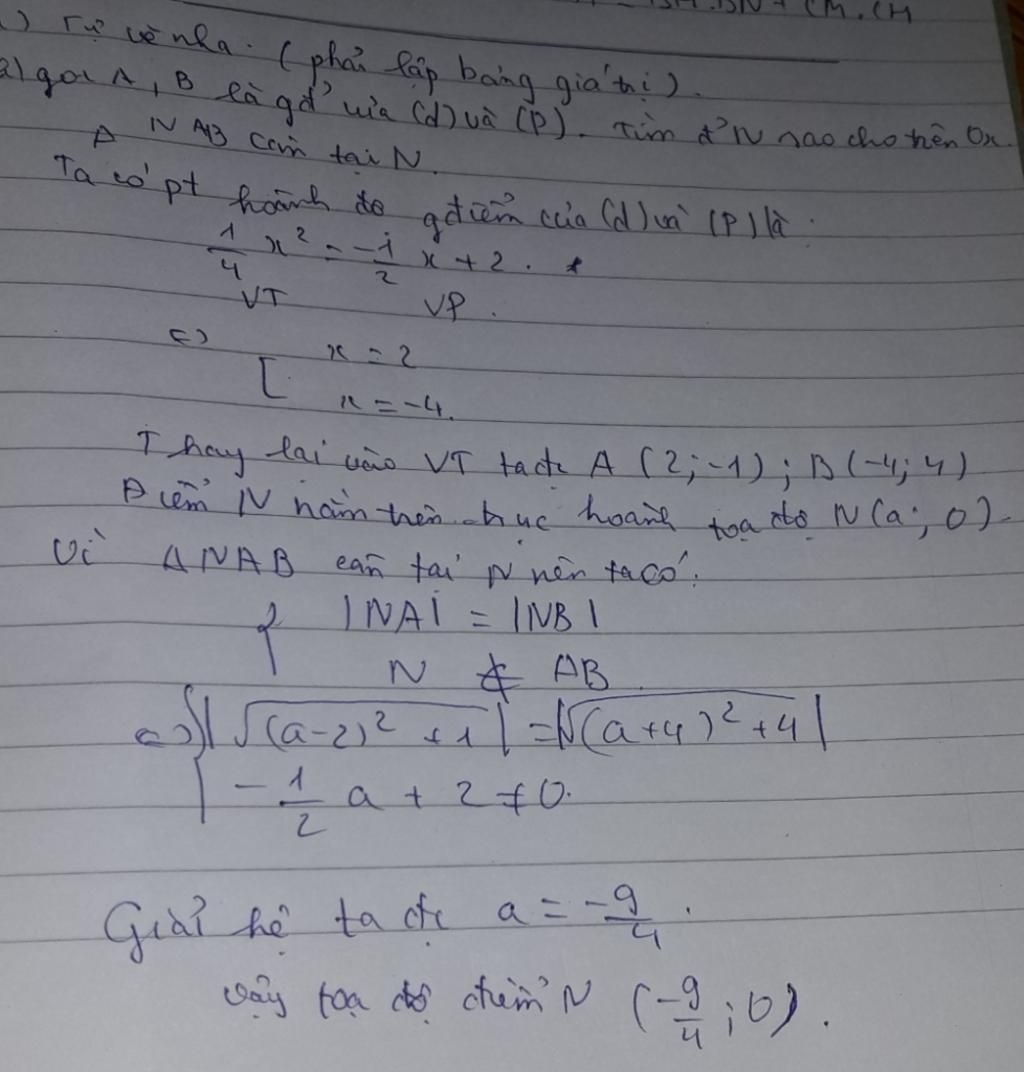 BH.BN + CM.CH
1) Tự vẽ nha. (phải lập bảng giá trị).
2) gọi A, B là gđ' của (d) và (P). Tìm đ' N sao cho trên Ox.
Δ NAB cân tại N.
Ta có pt hoành độ gđiểm của (d) và (P) là.
1/4 x² = -1/2 x + 2.
VT VP.
<=> [ x = 2
x = -4.
Thay lại vào VT ta đc A (2;-1); B(-4; 4)
Điểm N nằm trên trục hoành tọa độ N(a; 0).
Vì ΔNAB cân tại N nên ta có:
{ |NA| = |NB|
N ∉ AB
<=> { |√(a-2)² + 1| = |√(a+4)² + 4|
-1/2 a + 2 ≠ 0.
Giải hệ ta đc a = -9/4.
vậy tọa độ điểm N (-9/4; 0).